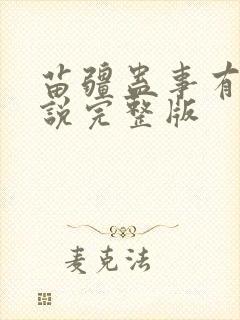 苗疆蛊事有
说完整版
麦克法